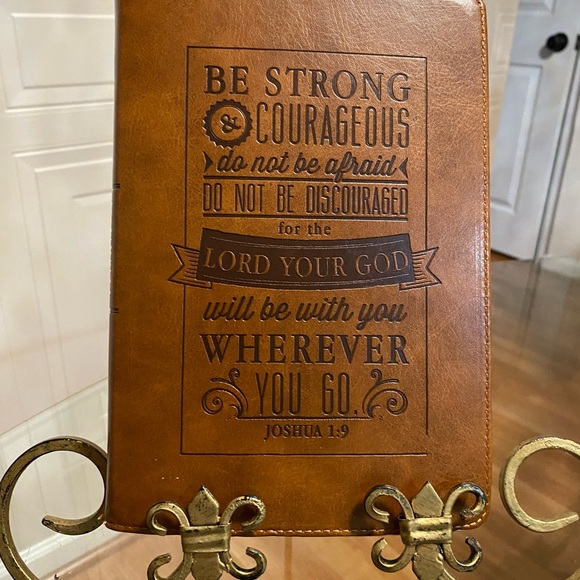 BE STRONG
& COURAGEOUS
do not be afraid
DO NOT BE DISCOURAGED
for the
LORD YOUR GOD
will be with you
WHEREVER
YOU GO.
JOSHUA 1:9